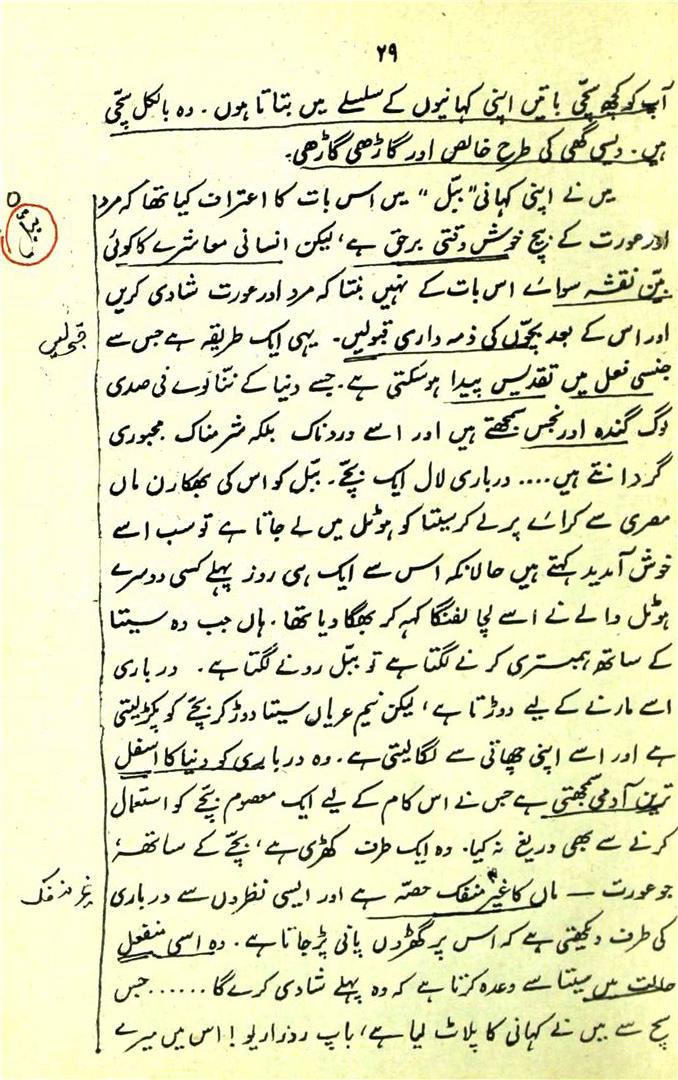 ۲۹
آپ کو کچھ سچّی باتیں اپنی کہانیوں کے سلسلے میں بتاتا ہوں۔ وہ بالکل سچّی
ہیں۔ دیسی گھی کی طرح خالص اور گاڑھی گاڑھی۔
میں نے اپنی کہانی "ببّل" میں اس بات کا اعتراف کیا تھا کہ مرد
اور عورت کے بیچ خوش وقتی برحق ہے، لیکن انسانی معاشرے کا کوئی
بیّن نقشہ سوائے اس بات کے نہیں بنتا کہ مرد اور عورت شادی کریں
اور اس کے بعد بچّوں کی ذمہ داری قبولیں۔ یہی ایک طریقہ ہے جس سے
جنسی فعل میں تقدیس پیدا ہوسکتی ہے۔ جسے دنیا کے ننانوے فی صدی
لوگ گندہ اور نجس سمجھتے ہیں اور اسے دردناک بلکہ شرمناک مجبوری
گردانتے ہیں.... درباری لال ایک بچّے۔ ببّل کو اس کی بھکارن ماں
مصری سے کرائے پر لے کر سیتا کو ہوٹل میں لے جاتا ہے تو سب اسے
خوش آمدید کہتے ہیں حالانکہ اس سے ایک ہی روز پہلے کسی دوسرے
ہوٹل والے نے اسے لچا لفنگا کہہ کر بھگا دیا تھا۔ ہاں جب وہ سیتا
کے ساتھ ہمبستری کرنے لگتا ہے تو ببّل رونے لگتا ہے۔ درباری
اسے مارنے کے لیے دوڑتا ہے، لیکن نیم عریاں سیتا دوڑ کر بچّے کو پکڑ لیتی
ہے اور اسے اپنی چھاتی سے لگا لیتی ہے۔ وہ درباری کو دنیا کا اسفل
ترین آدمی سمجھتی ہے جس نے اس کام کے لیے ایک معصوم بچّے کو استعمال
کرنے سے بھی دریغ نہ کیا۔ وہ ایک طرف کھڑی ہے، بچّے کے ساتھ۔
جو عورت — ماں کا غیر منفک حصّہ ہے اور ایسی نظروں سے درباری
غیر منفک
کی طرف دیکھتی ہے کہ اس پر گھڑوں پانی پڑ جاتا ہے۔ وہ اسی منفعل
حالت میں سیتا سے وعدہ کرتا ہے کہ وہ پہلے شادی کرے گا ...... جس
سچ سے میں نے کہانی کا پلاٹ لیا ہے، باپ روزاریو! اس میں میرے